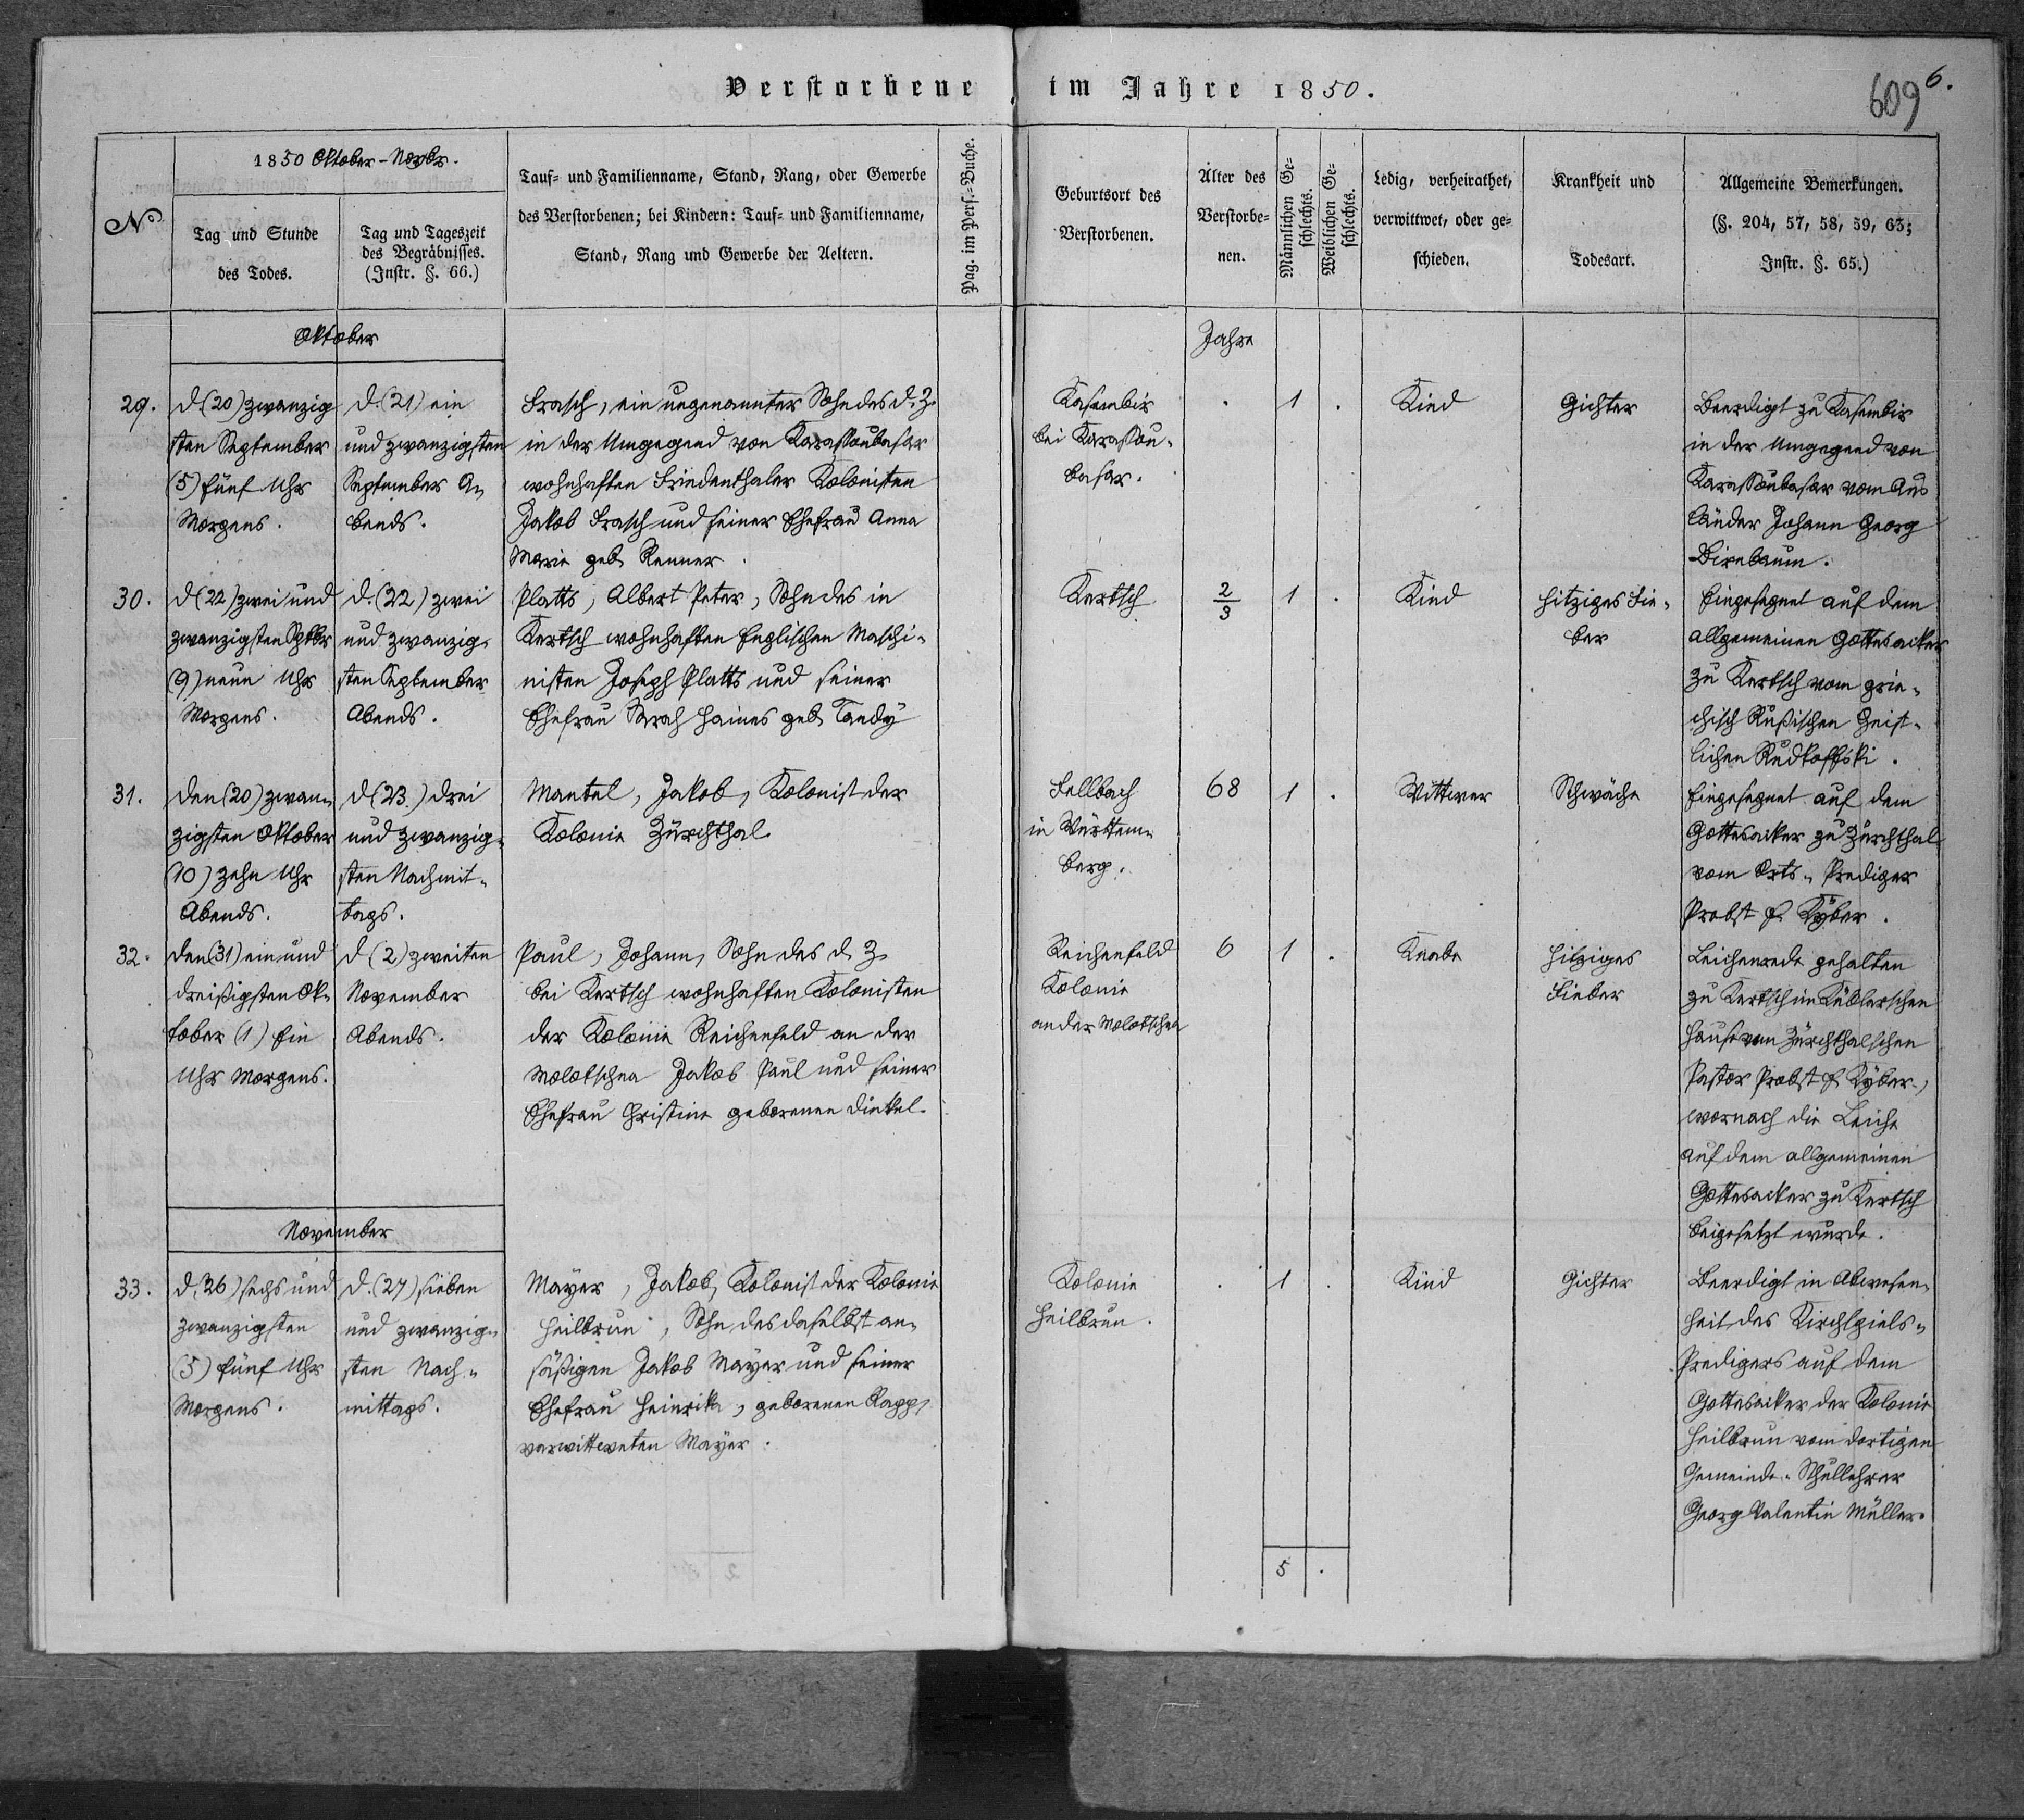 Verstorbene im Jahre 1850.
609 6.
No
1850 Oktober-Novbr.
Tag und Stunde
des Todes.
Tag und Tageszeit
des Begräbnisses.
(Instr. §. 66.)
Tauf- und Familienname, Stand, Rang, oder Gewerbe
des Verstorbenen; bei Kindern: Tauf- und Familienname,
Stand, Rang und Gewerbe der Aeltern.
Pag. im Pers.-Buche.
Geburtsort des
Verstorbenen.
Alter des
Verstorbe-
nen.
Männlichen Ge-
schlechts.
Weiblichen Ge-
schlechts.
Ledig, verheirathet,
verwittwet, oder ge-
schieden.
Krankheit und
Todesart.
Allgemeine Bemerkungen.
(§. 204, 57, 58, 59, 63;
Instr. §. 65.)
Oktober
Jahre
29.
d. (20) zwanzig
sten September
(5) fünf Uhr
Morgens.
d. (21) ein
und zwanzigsten
September A-
bends.
Frasch, ein ungenannter Sohn des d. Z.
in der Umgegend von Karassoubasar
wohnhaften Friedenthaler Kolonisten
Jakob Frasch und seiner Ehefrau Anna
Marie geb. Renner.
Kasembir
bei Karassou-
basar.
. 1 .
Kind
Gichter
Beerdigt zu Kasembir
in der Umgegend von
Karassoubasar vom Aus
länder Johann Georg
Birnbaum.
30.
d (22) zwei und
zwanzigsten Sptbr
(9) neun Uhr
Morgens.
d. (22) zwei
und zwanzig-
sten September
Abends.
Platts, Albert Peter, Sohn des in
Kertsch wohnhaften Englischen Maschi-
nisten Joseph Platts und seiner
Ehefrau Sarah Haines geb. Tandy
Kertsch
2/3 1 .
Kind
Hitziges Fie-
ber
Eingesegnet auf dem
allgemeinen Gottesacker
zu Kertsch vom grie-
chisch Rußischen Geist-
lichen Rudkoffski.
31.
den (20) zwan-
zigsten Oktober
(10) zehn Uhr
Abends.
d (23.) drei
und zwanzig-
sten Nachmit-
tags.
Mantel, Jakob, Kolonist der
Kolonie Zürchthal.
Fellbach
in Württem-
berg.
68 1 .
Wittwer
Schwäche
Eingesegnet auf dem
Gottesacker zu Zürchthal
vom Orts-Prediger
Probst F. Kyber.
32.
den (31) ein und
dreißigsten Ok-
tober (1) Ein
Uhr Morgens.
d (2) zweiten
November
Abends.
Paul, Johann, Sohn des d. Z.
bei Kertsch wohnhaften Kolonisten
der Kolonie Reichenfeld an der
Molotschna Jakob Paul und seiner
Ehefrau Christine geborenen Dinkel.
Reichenfeld
Kolonie
an der Molotschna
6 1 .
Knabe
Hitziges
Fieber
Leichenrede gehalten
zu Kertsch im Küblerschen
Hause von Zürchthalschen
Pastor Probst F. Kyber,
wornach die Leiche
auf dem allgemeinen
Gottesacker zu Kertsch
beigesetzt wurde.
November
33.
d. (26) sechs und
zwanzigsten
(5) fünf Uhr
Morgens.
d. (27) sieben
und zwanzig-
sten Nach-
mittags.
Mayer, Jakob, Kolonist der Kolonie
Heilbrun, Sohn des daselbst an-
säßigen Jakob Mayer und seiner
Ehefrau Heinrika, geborenen Rapp,
verwittweten Mayer.
Kolonie
Heilbrun.
. 1 .
Kind
Gichter
Beerdigt in Abwesen-
heit des Kirchspiels-
Predigers auf dem
Gottesacker der Kolonie
Heilbrun vom dortigen
Gemeinde-Schullehrer
Georg Valentin Müller.
5 .